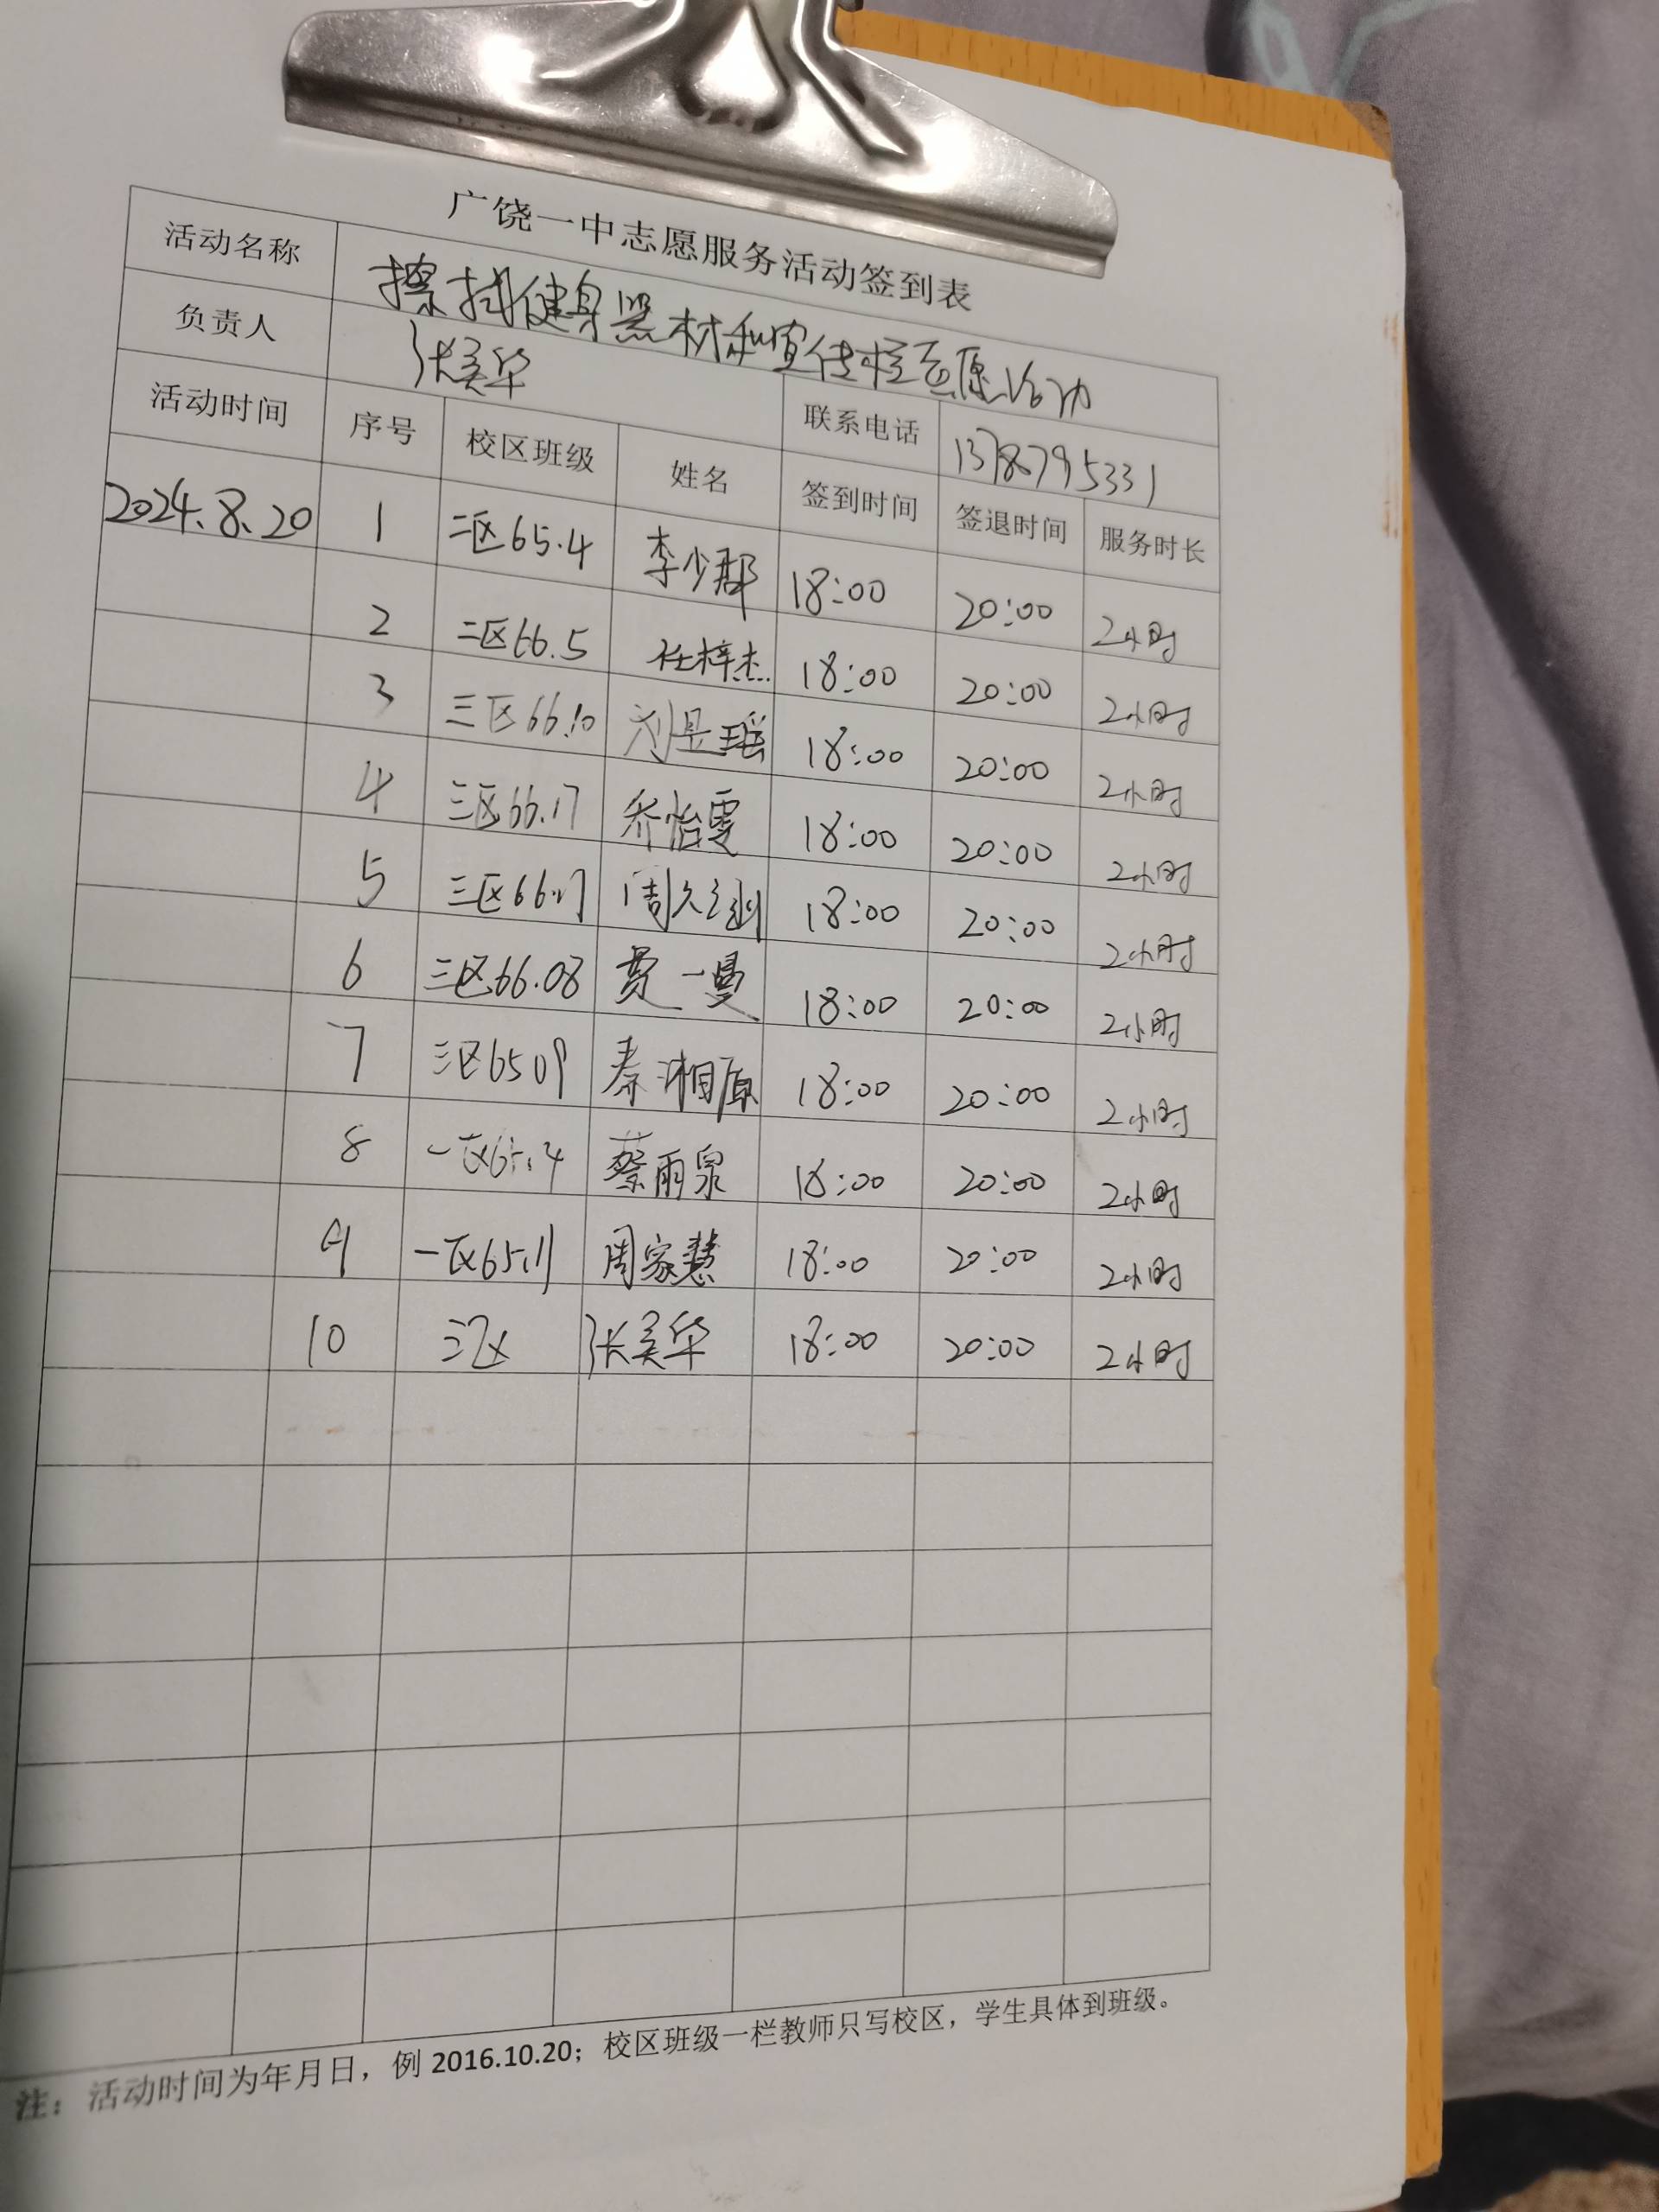 广饶一中志愿服务活动签到表
活动名称 擦拭健身器材和宣传栏志愿活动
负责人 张美华 联系电话
活动时间 序号 校区班级 姓名 签到时间 签退时间 服务时长
2024.8.20 1 二区65.4 李少郡 18:00 20:00 2小时
2 二区66.5 任梓杰 18:00 20:00 2小时
3 三区66.10 刘昱瑶 18:00 20:00 2小时
4 三区66.17 乔怡雯 18:00 20:00 2小时
5 三区66.17 18:00 20:00 2小时
6 三区66.08 贾一曼 18:00 20:00 2小时
7 三区6509 秦湘原 18:00 20:00 2小时
8 一区65.14 蔡雨泉 18:00 20:00 2小时
9 一区65.11 周家慧 18:00 20:00 2小时
10 三区 张美华 18:00 20:00 2小时
注：活动时间为年月日，例 2016.10.20；校区班级一栏教师只写校区，学生具体到班级。